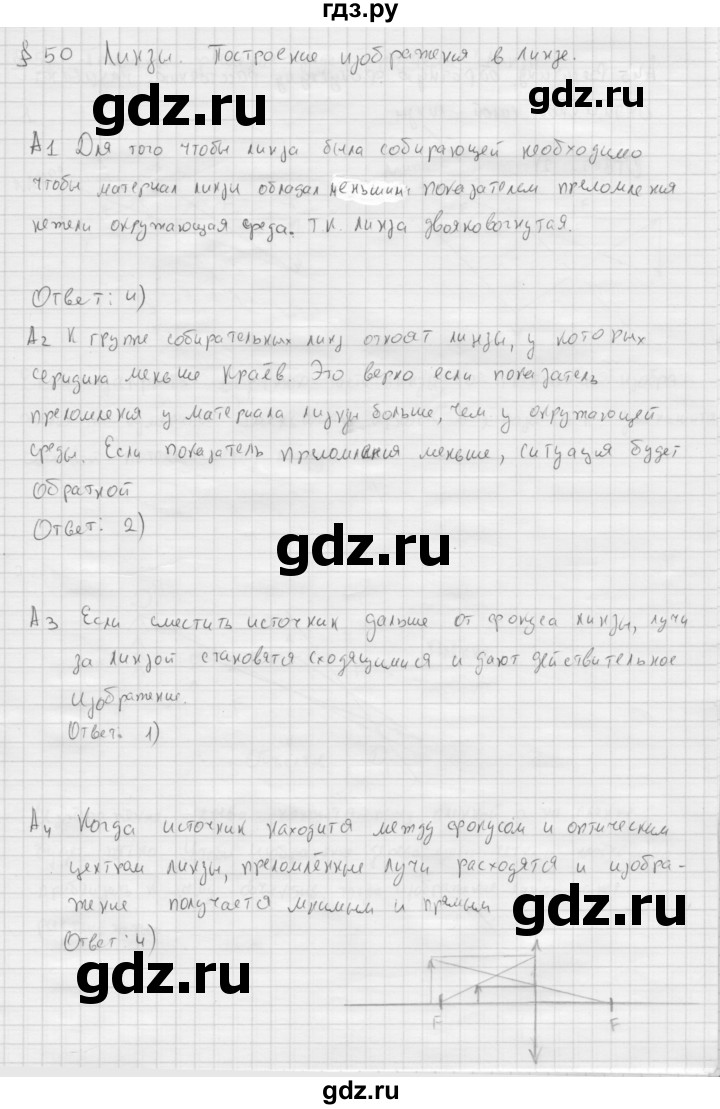 гдз.ру
§ 50 Линзы. Построение изображения в линзе.
gdz.ru
gdz.ru
А1 Для того чтобы линза была собирающей необходимо
чтобы материал линзы обладал меньшим показателем преломления
нежели окружающая среда. Т.К. линза двояковогнутая.
Ответ: 4)
А2 К группе собирательных линз относят линзы, у которых
середина меньше краёв. Это верно если показатель
преломления у материала линзы больше, чем у окружающей
среды. Если показатель преломления меньше, ситуация будет
обратной
Ответ: 2)
gdz.ru
А3 Если сместить источник дальше от фокуса линзы, лучи
за линзой становятся сходящимися и дают действительное
изображение.
Ответ: 1)
А4 Когда источник находится между фокусом и оптическим
центром линзы, преломлённые лучи расходятся и изобра-
жение получается мнимым и прямым
gdz.ru
Ответ: 4)
gdz.ru
F
F
gdz.ru